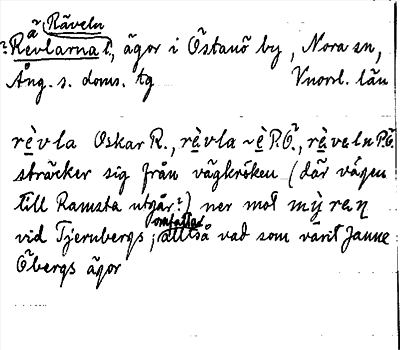 ä Räveln
?Revlarna l, ägor i Östanö by, Nora sn,
Ång. s. doms. tg Vnorrl. län
rèvla Oskar R., rèvla ~ è P.Ö., rèveln P.Ö.
sträcker sig från vägkröken (där vägen
till Ramsta utgår?) ner mot mỳren
omfattar
vid Tjernbergs; alltså vad som varit Janne
Öbergs ägor